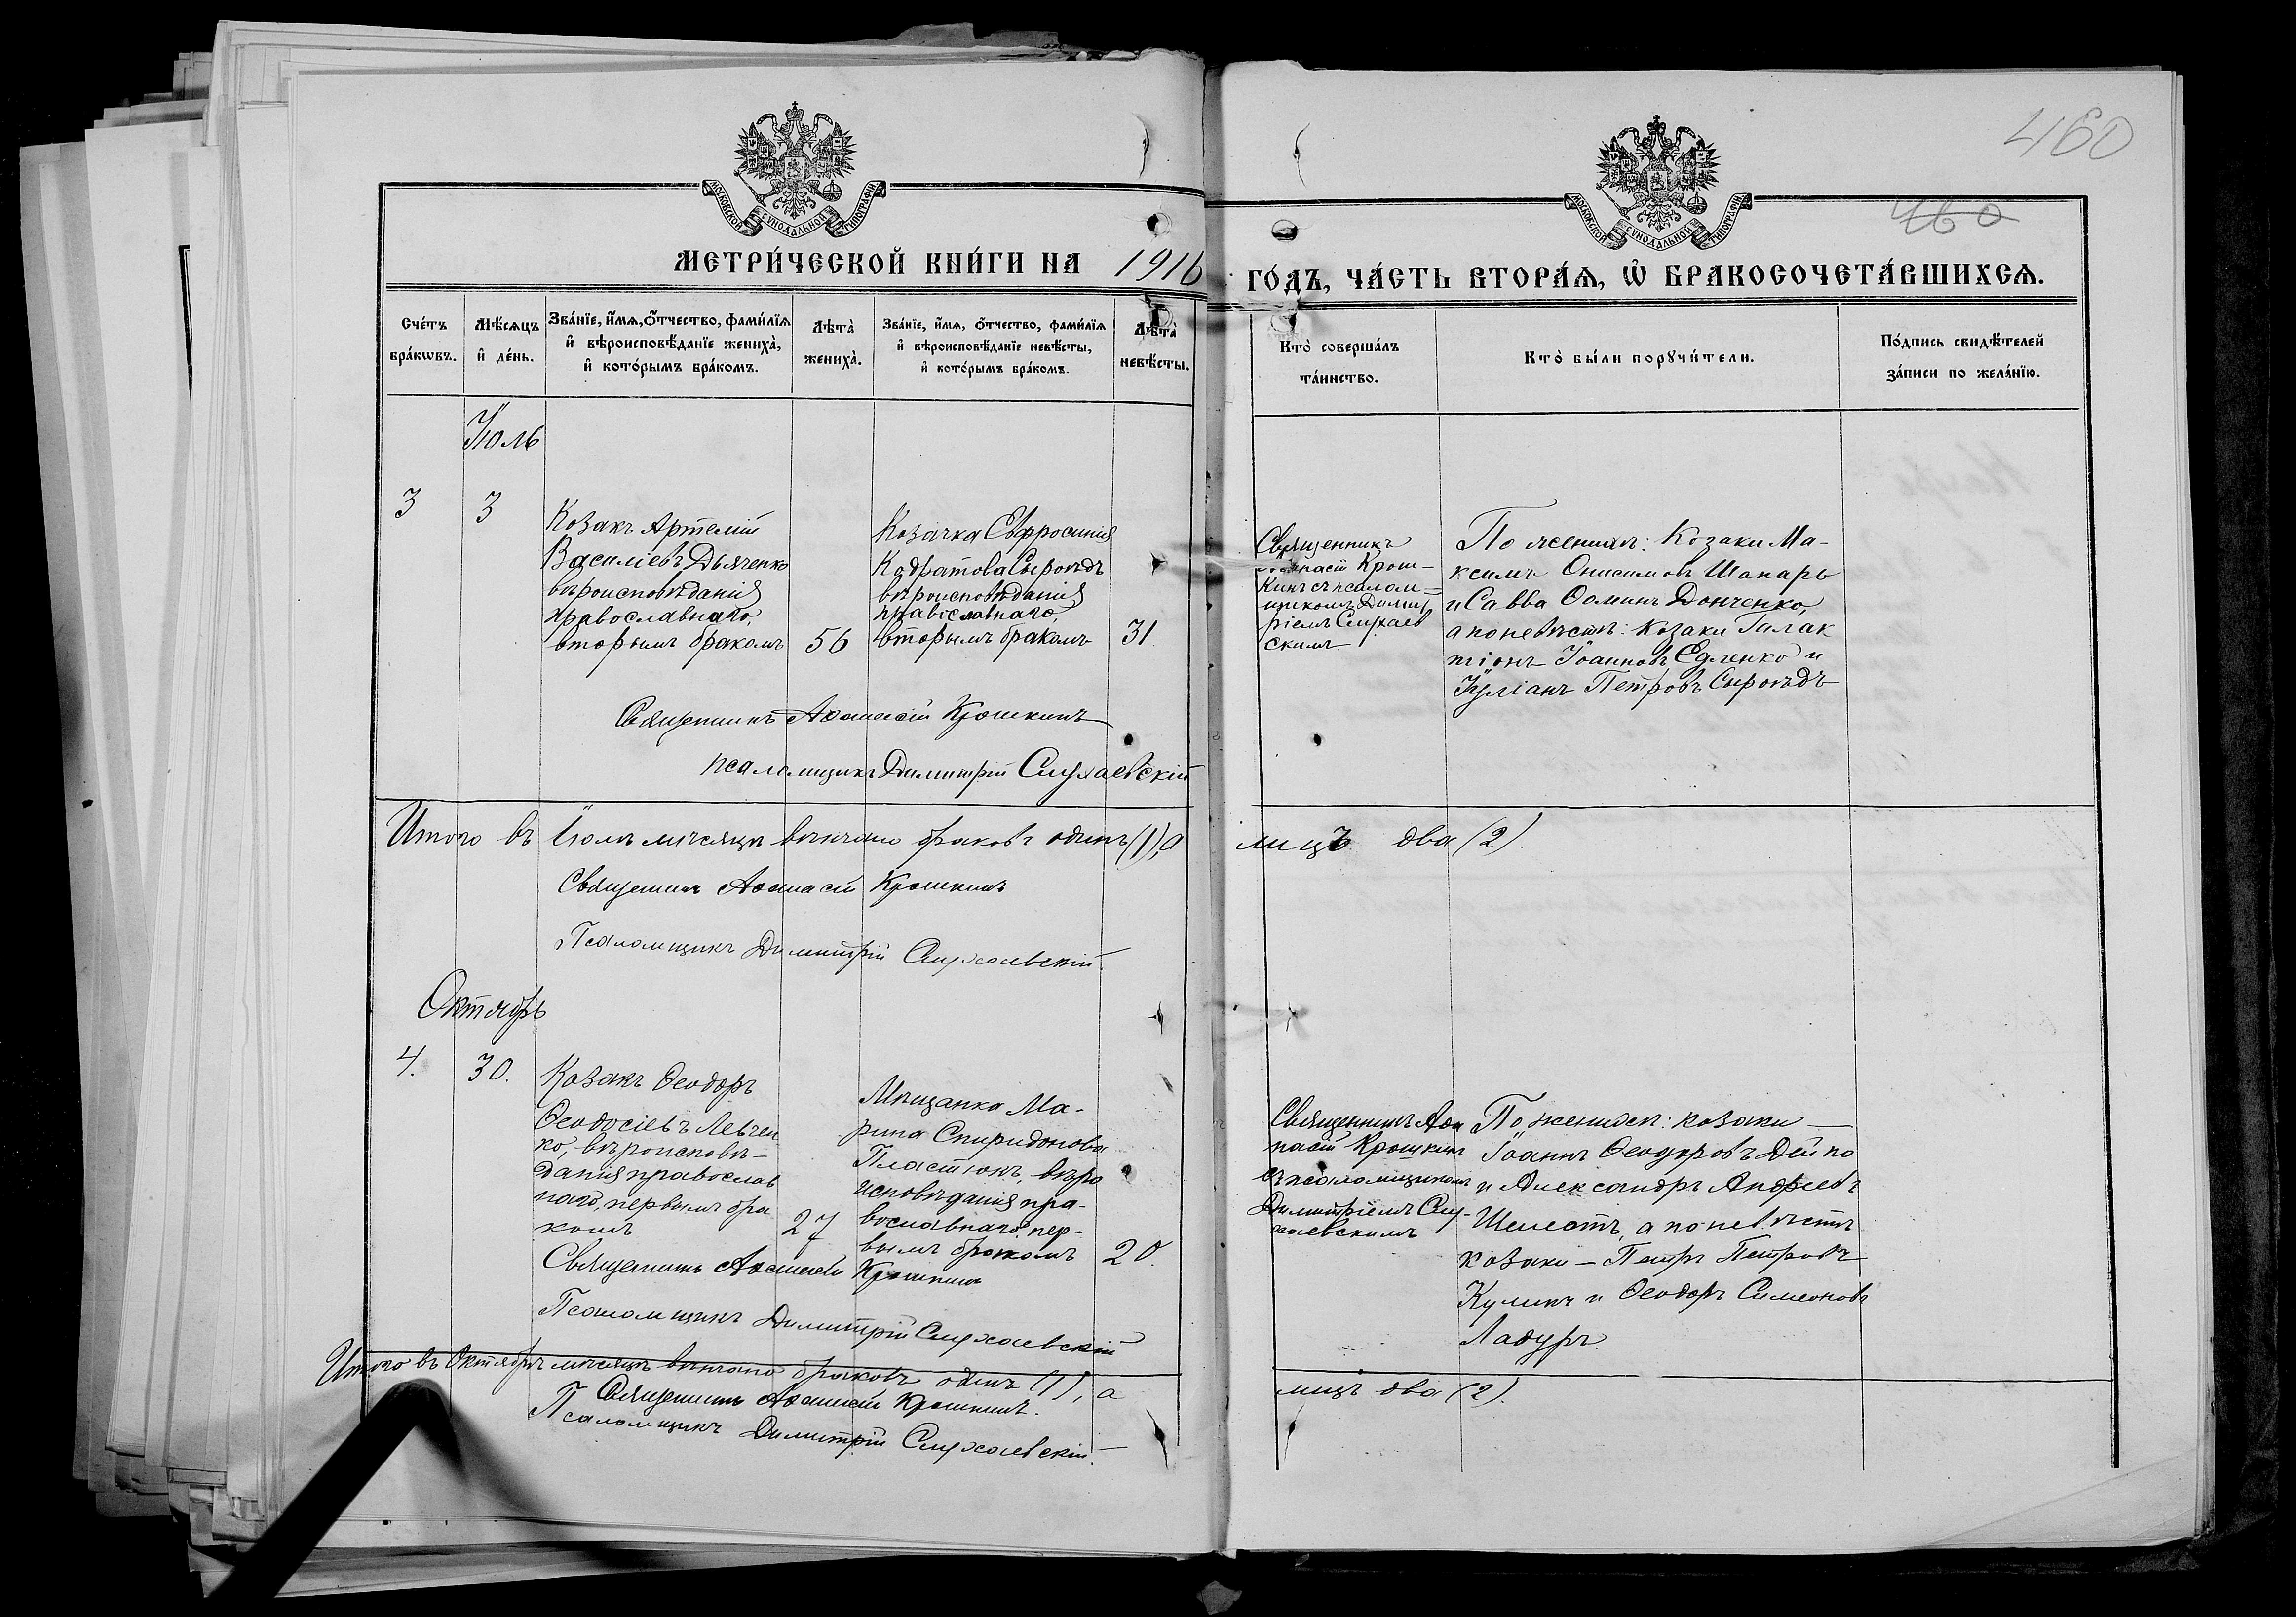 460
460
МОСКОВСКОЙ СѴНОДАЛЬНОЙ ТИПОГРАФІИ
МОСКОВСКОЙ СѴНОДАЛЬНОЙ ТИПОГРАФІИ
МЕТРИ́ЧЕСКОЙ КНИ́ГИ НА 1916
ГО́ДЪ, ЧА́СТЬ ВТОРА́Ѧ, Ѽ БРАКОСОЧЕТА́ВШИХСѦ.
Сче́тъ
бра́кѡвъ.
Мѣ́сяцъ
и҆ де́нь.
Зва́нїе, и҆́мѧ, ѻ҆́тчество, фами́лїѧ
и҆ вѣроисповѣ́данїе жениха̀,
и҆ кото́рымъ бра́комъ.
Лѣта̀
жениха̀.
Зва́нїе, и҆́мѧ, ѻ҆́тчество, фами́лїѧ
и҆ вѣроисповѣ́данїе невѣ́сты,
и҆ кото́рымъ бра́комъ.
Лѣта̀
невѣ́сты.
Кто̀ соверша́лъ
та́инство.
Кто̀ бы́ли порꙋчи́тели.
По́дпись свидѣ́телей
за́писи по жела́нїю.
Іюль
3
3
Козакъ Артемій
Василіевъ Дьяченко
вѣроисповѣданія
православнаго,
вторымъ бракомъ
56
Козачка Евфросинія
Кодратова Сыроѣдъ
вѣроисповѣданія
православнаго,
вторымъ бракомъ
31.
Священникъ
Аѳанасій Крош-
кинъ съ псалом-
щикомъ Димит
ріемъ Слухаев
скимъ
По женихѣ: Козаки Ма-
ксимъ Онисимовъ Шапарь
и Савва Ѳоминъ Донченко,
а по невѣстѣ: Козаки Галак
тіонъ Іоанновъ Едленко и
Іуліанъ Петровъ Сыроѣдъ
Священникъ Аѳанасій Крошкинъ
псаломщикъ Димитрій Слухаевскій
Итого въ Іюлѣ мѣсяцѣ вѣнчано браковъ одинъ (1), а
лицъ два (2).
Священникъ Аѳанасій Крошкинъ
Псаломщикъ Димитрій Слухаевскій.
Октябрь
4.
30.
Козакъ Ѳеодоръ
Ѳеодосіевъ Левчен
ко, вѣроисповѣ-
данія православ
наго, первымъ бра
комъ
27
Мѣщанка Ма-
рина Спиридонова
Пластюкъ, вѣро
исповѣданія пра-
вославнаго, пер-
вымъ бракомъ
20.
Священникъ Аѳа
насій Крошкинъ
съ псаломщикомъ
Димитріемъ Слу-
хаевскимъ
По женихѣ: козаки —
Іоаннъ Ѳеодоровъ Дейко
и Александръ Андреевъ
Шелестъ, а по невѣстѣ
козаки — Петръ Петровъ
Куликъ и Ѳеодоръ Симеоновъ
Ладуръ.
Священникъ Аѳанасій Крошкинъ
Псаломщикъ Димитрій Слухаевскій
Итого въ Октябрѣ мѣсяцѣ вѣнчано браковъ одинъ (1), а
лицъ два (2).
Священникъ Аѳанасій Крошкинъ.
Псаломщикъ Димитрій Слухаевскій.